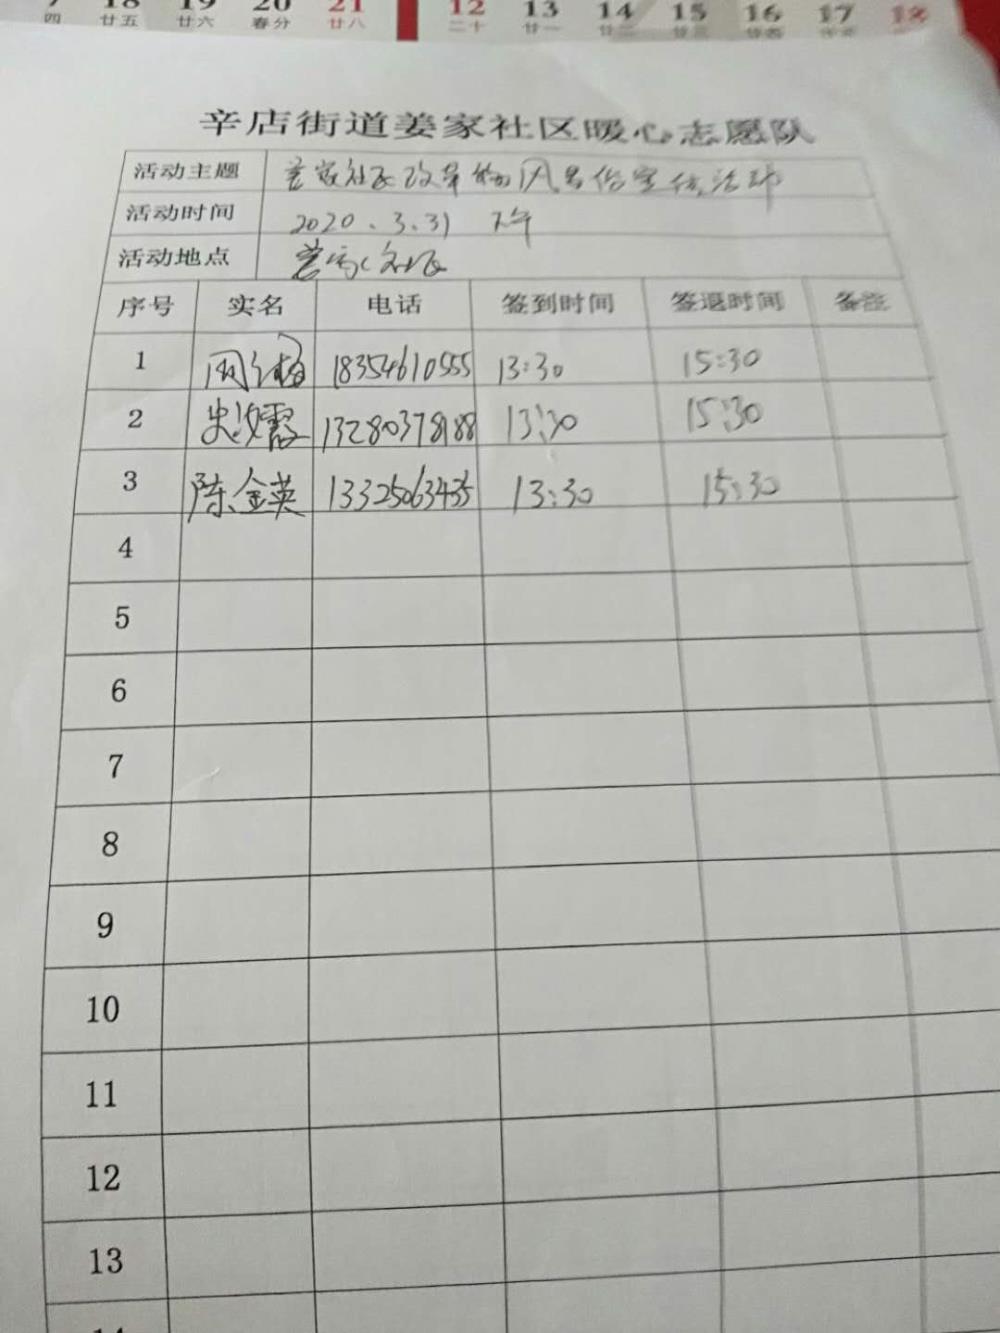 18 19 20 21 12 13 14 15 16 17 18
四 廿五 廿六 春分 廿八 二十 廿一 廿二 廿三 廿四
辛店街道姜家社区暖心志愿队
活动主题 姜家社区改革婚风易俗宣传活动
活动时间 2020.3.31 下午
活动地点 姜家社区
序号 实名 电话 签到时间 签退时间 备注
1 18354610555 13:30 15:30
2 史汝霞 13280378188 13:30 15:30
3 陈金英 13325063435 13:30 15:30
4
5
6
7
8
9
10
11
12
13